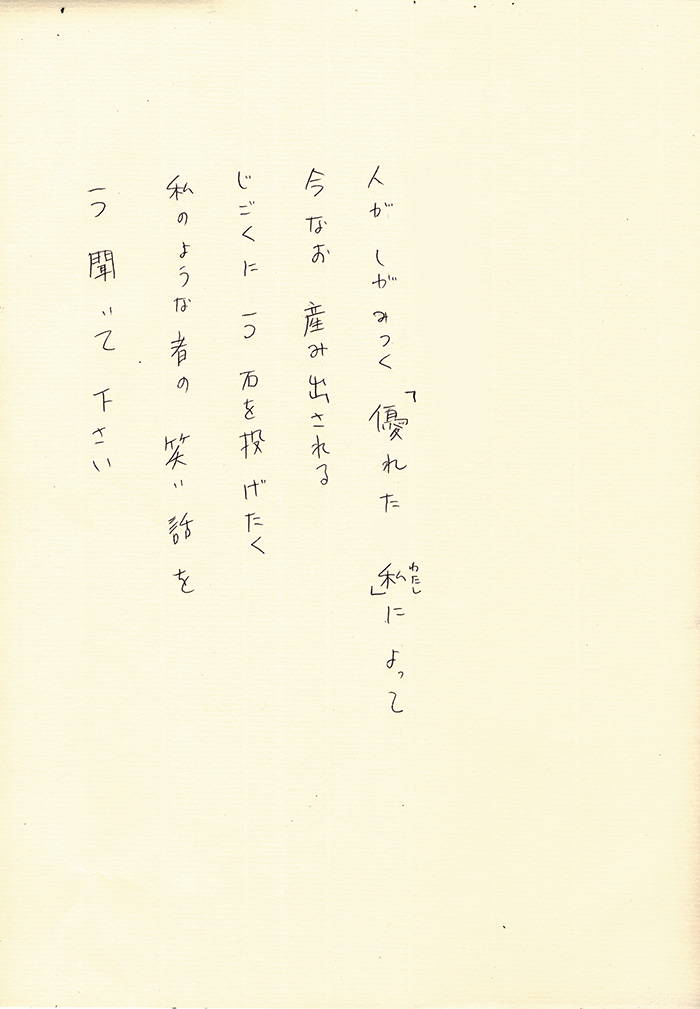 人がしがみつく「優れた 私」によって
わたし
今なお 産み出される
じごくに 一つ 石を投げたく
私のような者の 笑い話を
一つ 聞いて下さい